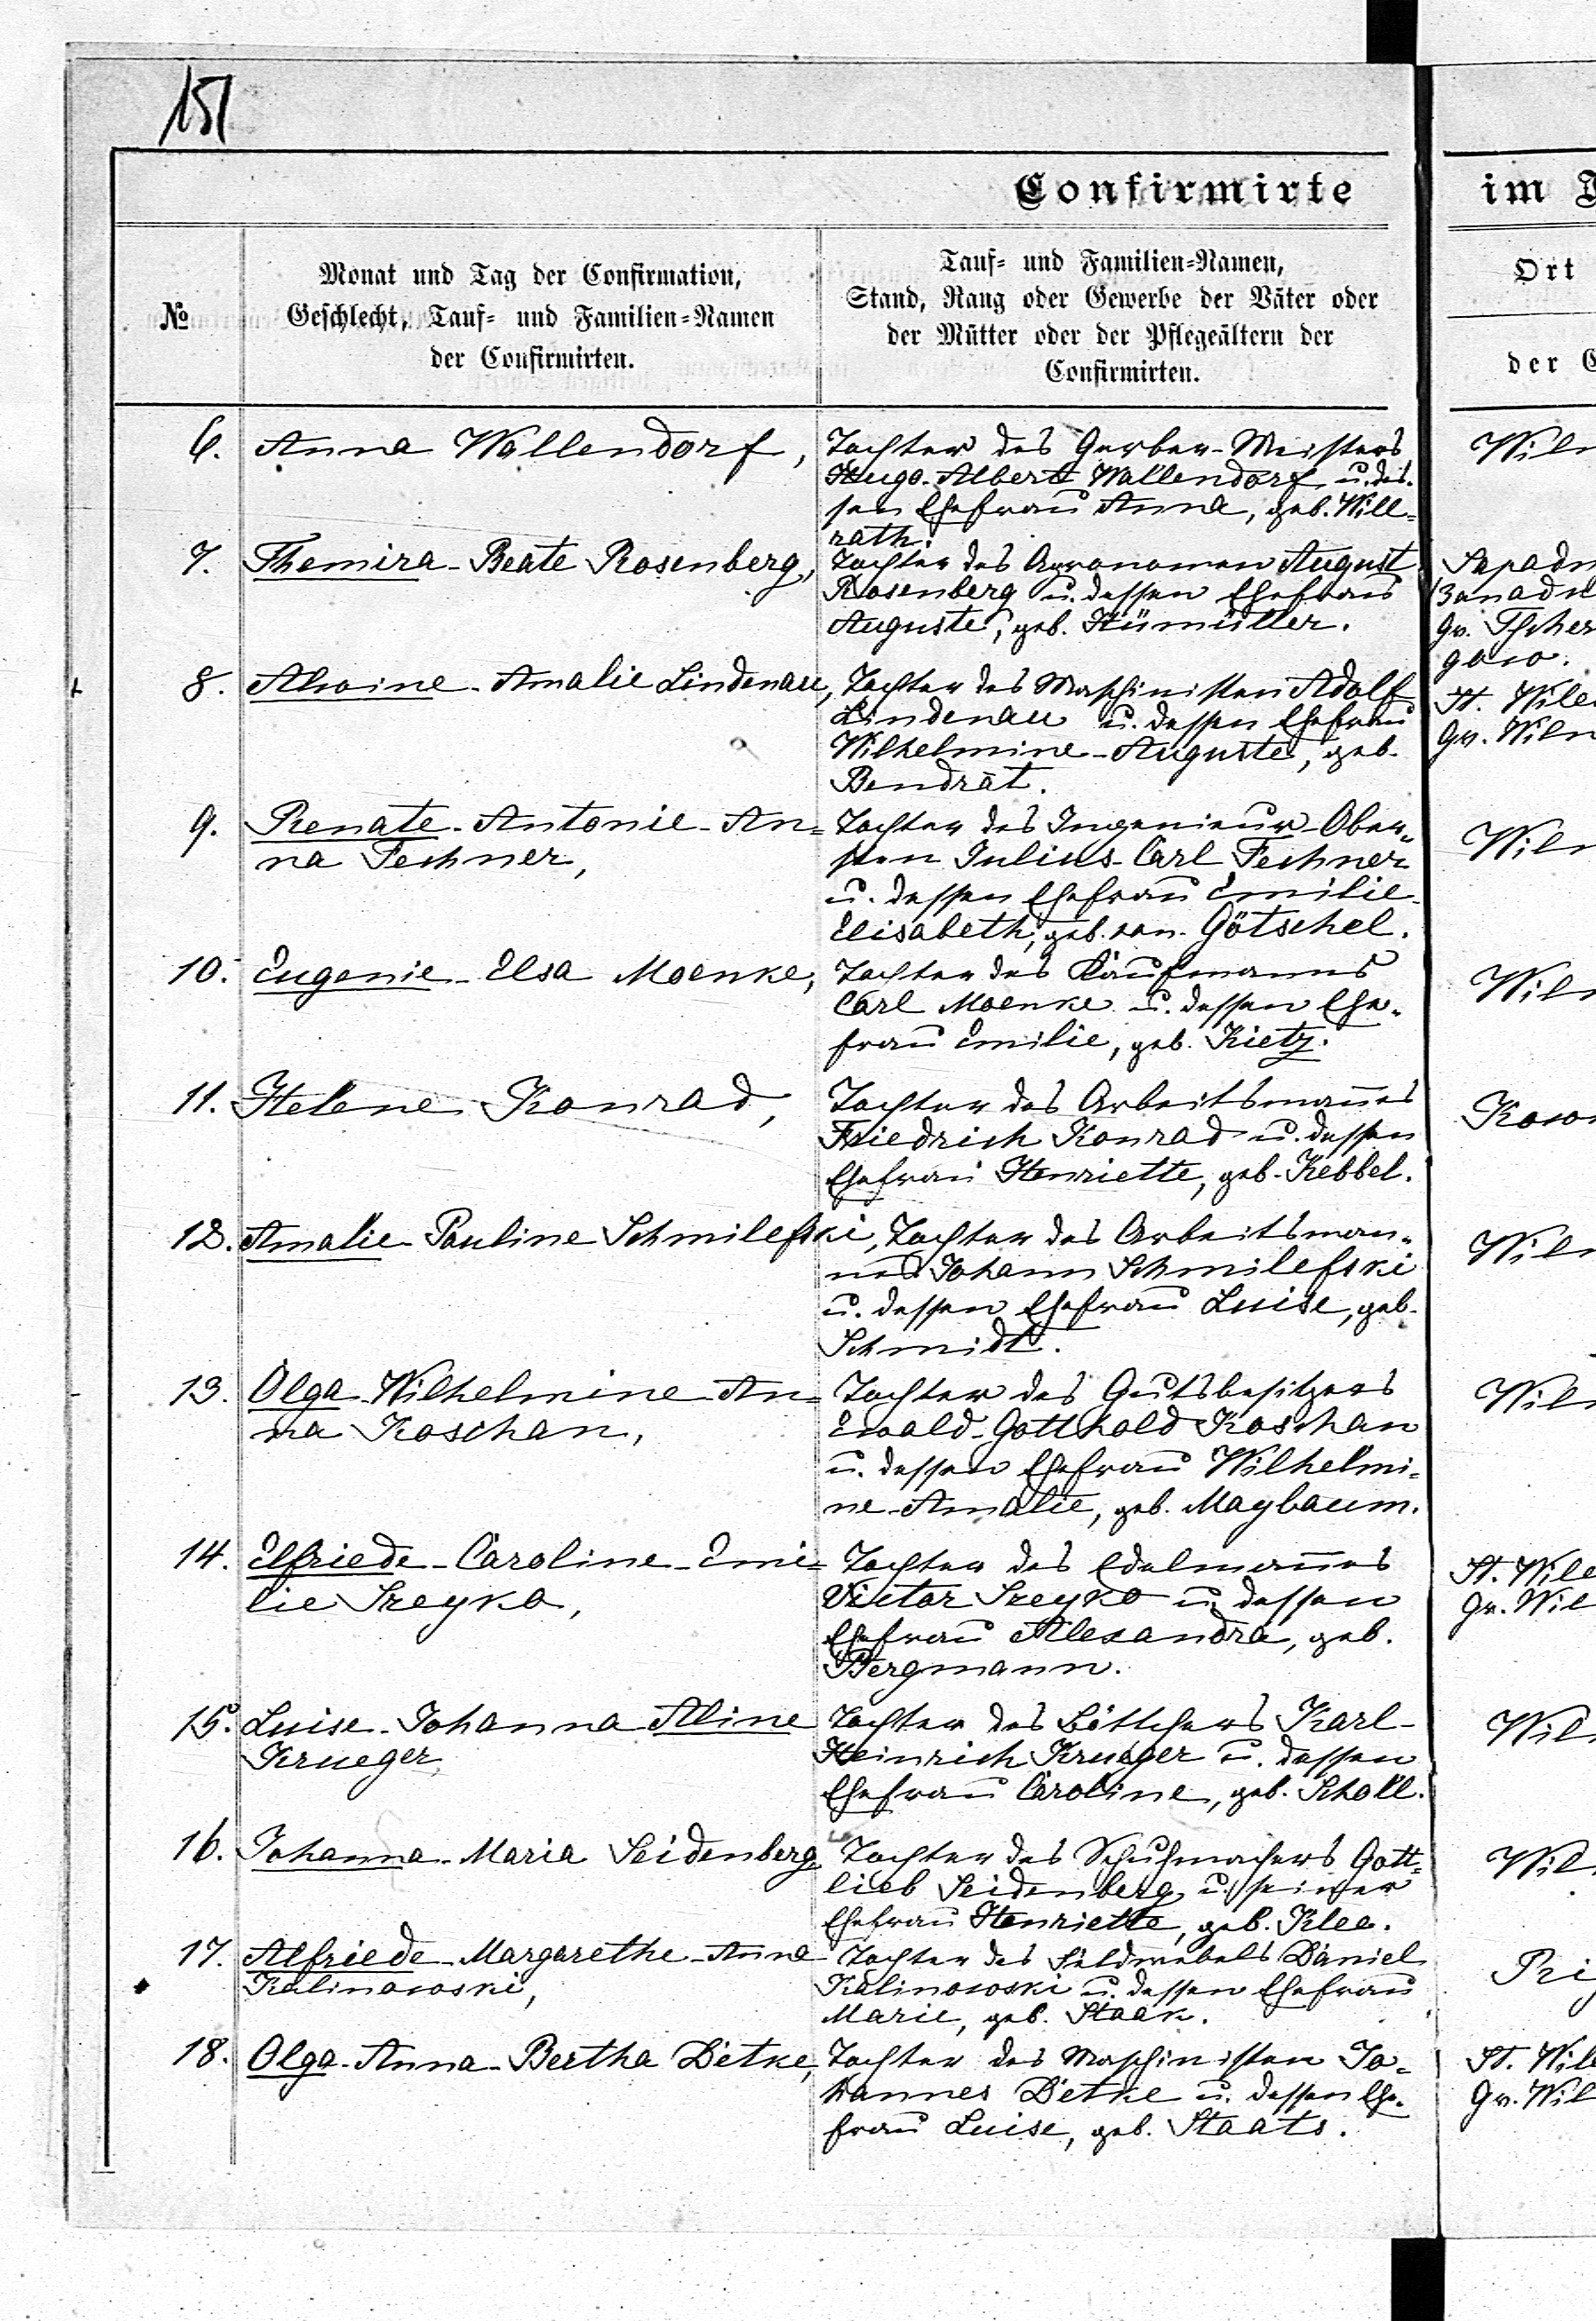 151
Confirmirte
im
№
Monat und Tag der Confirmation,
Geschlecht, Tauf- und Familien-Namen
der Confirmirten.
Tauf- und Familien-Namen,
Stand, Rang oder Gewerbe der Väter oder
der Mütter oder der Pflegeältern der
Confirmirten.
Ort
der
6. Anna Wallendorf,
Tochter des Gerber-Meisters
Hugo-Albert Wallendorf u. des-
sen Ehefrau Anna, geb. Will=
rath.
Wiln
7. Themira-Beate Rosenberg,
Tochter des Agronomen August
Rosenberg u. dessen Ehefrau
Auguste, geb. Hümüller.
Sapadn
Западн
Gv. Tscher
gow.
8. Alwine-Amalie Lindenau,
Tochter des Maschinisten Adolf
Lindenau u. dessen Ehefrau
Wilhelmine-Auguste, geb.
Bendrat.
St. Wile
Gv. Wiln
9. Renate-Antonie-An=
na Fechner,
Tochter des Ingenieur-Ober=
sten Julius-Carl Fechner
u. dessen Ehefrau Emilie-
Elisabeth, geb. von Götschel.
Wiln
10. Eugenie-Elsa Moenke,
Tochter des Kaufmanns
Carl Moenke u. dessen Ehe-
frau Emilie, geb. Kietz.
Wiln
11. Helene Konrad,
Tochter des Arbeitsmañes
Friedrich Konrad u. dessen
Ehefrau Henriette, geb. Kebbel.
Kown
12. Amalie-Pauline Schmilefski,
Tochter des Arbeitsman-
nes Johann Schmilefski
u. dessen Ehefrau Luise, geb.
Schmidt.
Wiln
13. Olga-Wilhelmine-An=
na Koschan,
Tochter des Gutsbesitzers
Ewald-Gotthold Koschan
u. dessen Ehefrau Wilhelmi=
ne-Amalie, geb. Maybaum.
Wiln
14. Elfriede-Caroline-Emi=
lie Szeyko,
Tochter des Edelmañes
Victor Szeyko u. dessen
Ehefrau Alexandra, geb.
Bergmann.
St. Wile
Gv. Wil
15. Luise-Johanna-Aline
Krueger,
Tochter des Böttchers Karl-
Heinrich Krueger u. dessen
Ehefrau Caroline, geb. Scholl.
Wil
16. Johanna-Maria Seidenberg
Tochter des Schuhmachers Gott=
lieb Seidenberg u. seiner
Ehefrau Henriette, geb. Klee.
Wil
17. Alfriede-Margarethe-Anna
Kalinowski,
Tochter des Feldwebels Daniel
Kalinowski u. dessen Ehefrau
Marie, geb. Staak.
Rig
18. Olga-Anna-Bertha Detke,
Tochter des Maschinisten Jo=
hannes Detke u. dessen Ehe-
frau Luise, geb. Staats.
St. Wile
Gv. Wil